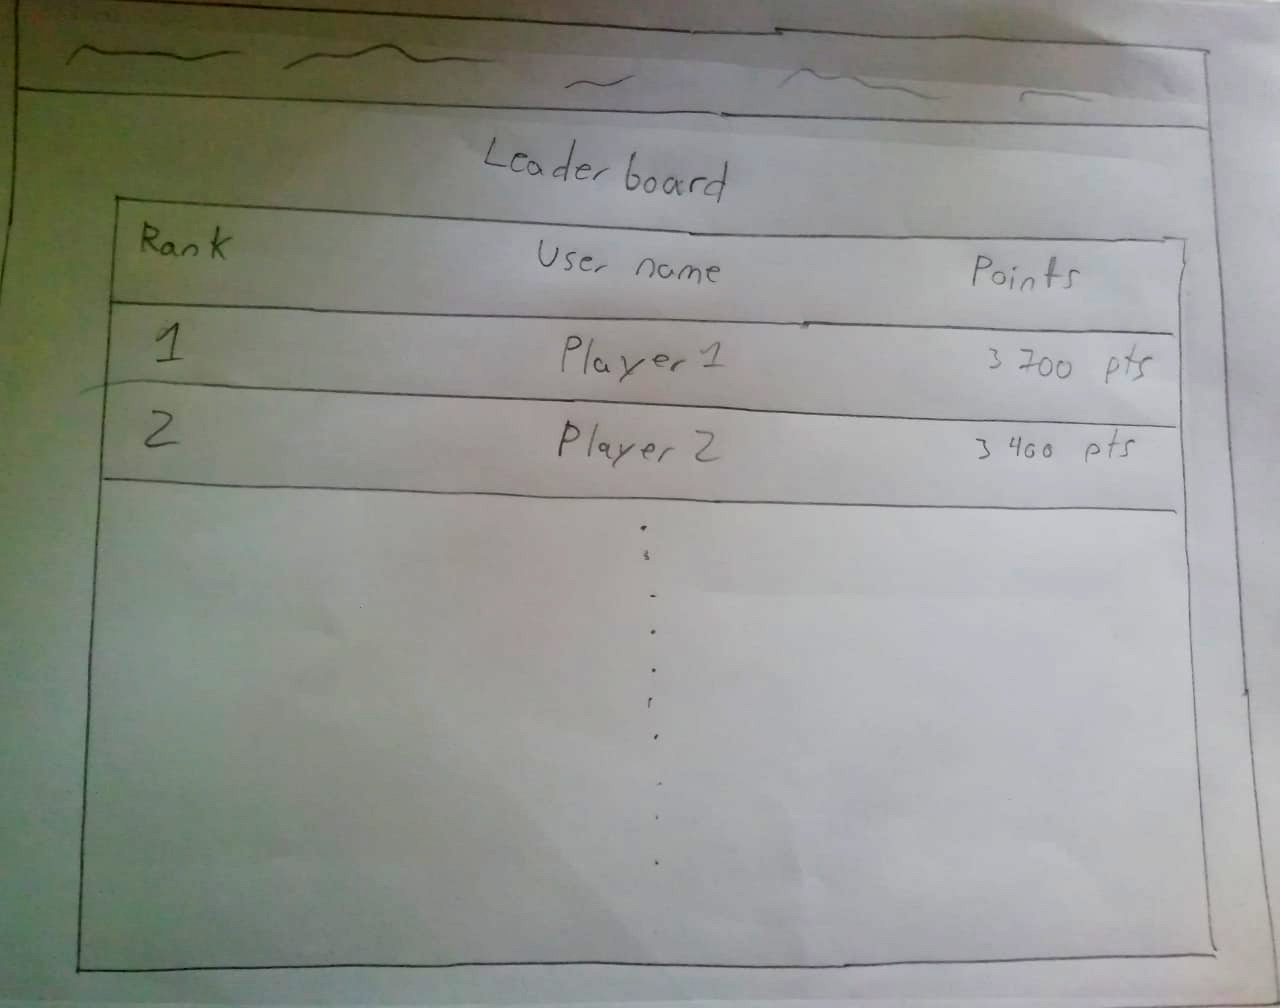 Leader board
Rank User name Points
1 Player 1 3 700 pts
2 Player 2 3 400 pts